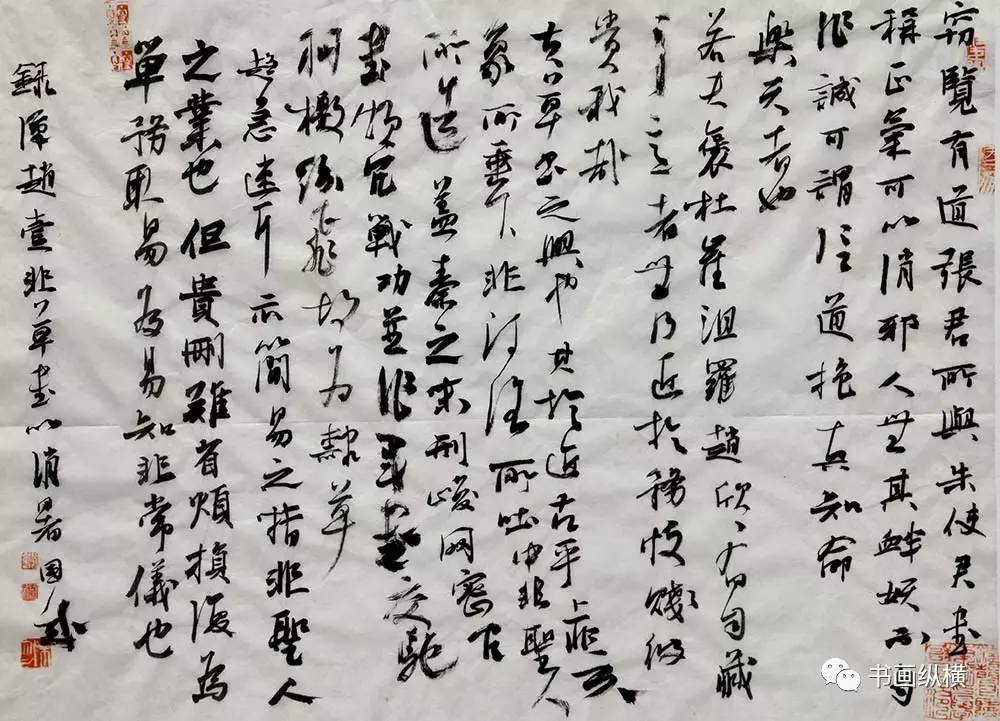 窃覽有道張君所與朱使君書
稱正氣可以消邪人無其衅妖不自
作誠可謂信道抱真知命
樂天者也
若夫褒杜崔沮羅趙欣欣有自臧
之意者無乃近於矜忮賤彼
貴我哉
夫草書之興也其於近古乎上非天
象所垂下非河洛所吐中非聖人
所造蓋秦之末刑峻網密官
書煩冗戰功並作軍書交馳
羽檄紛飛故為隸草
趨急速耳示簡易之指非聖人
之業也但貴刪難省煩損復為
單務取易為易知非常儀也
錄漢趙壹非草書以消暑國
书画纵横